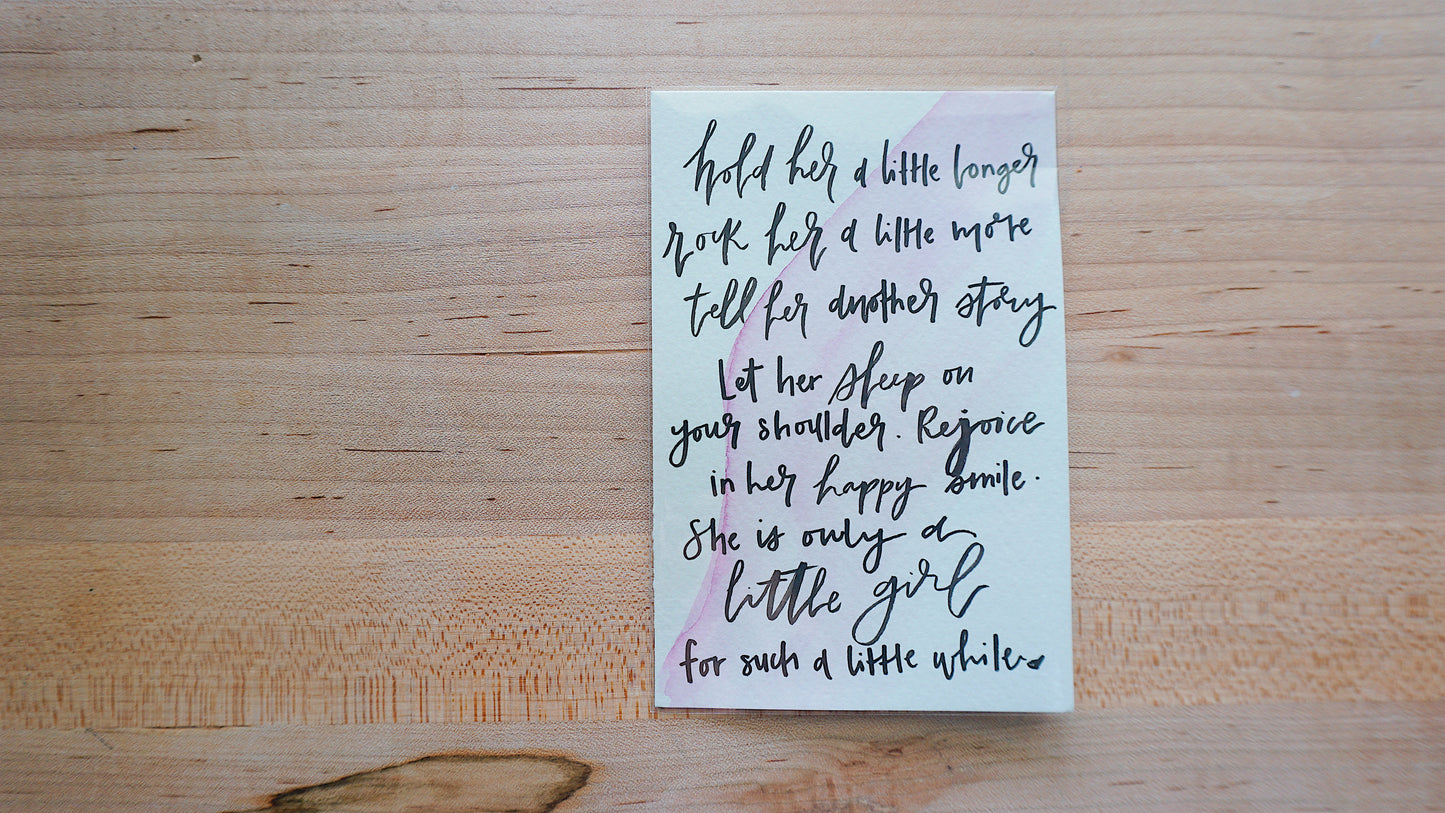 hold her a little longer
rock her a little more
tell her another story
Let her sleep on
your shoulder. Rejoice
in her happy smile.
She is only a
little girl
for such a little while